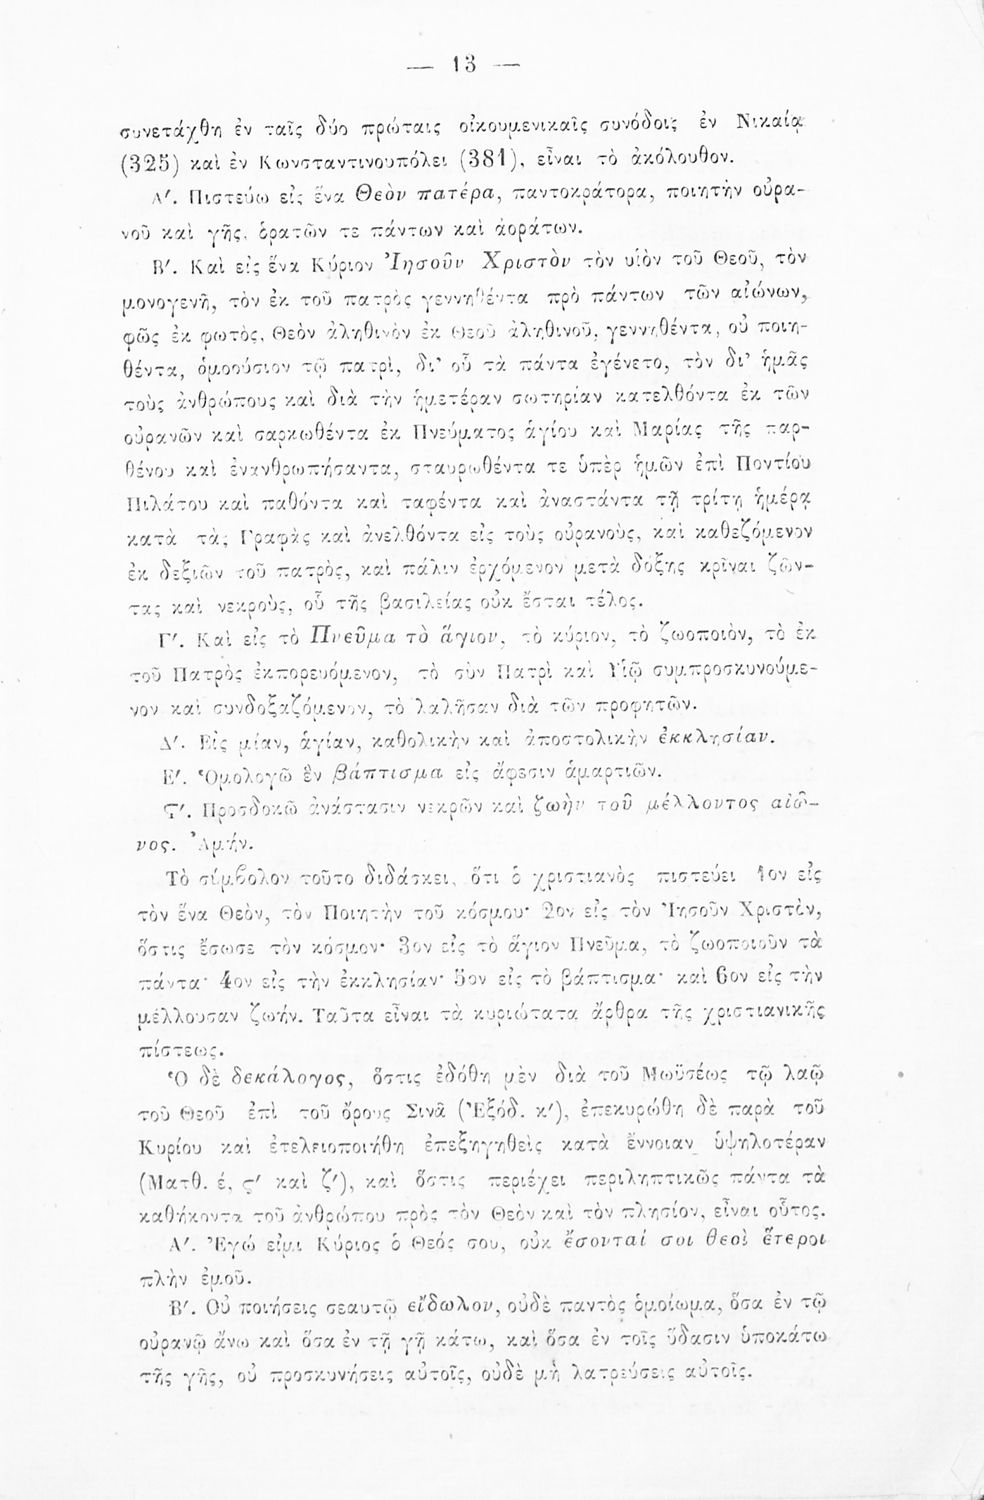 — 13 —
συνετάχθη ἐν ταῖς δύο πρώταις οἰκουμενικαῖς συνόδοις ἐν Νικαίᾳ
(325) καὶ ἐν Κωνσταντινουπόλει (381), εἶναι τὸ ἀκόλουθον.
Α′. Πιστεύω εἰς ἕνα Θεὸν πατέρα, παντοκράτορα, ποιητὴν οὐρα-
νοῦ καὶ γῆς, ὁρατῶν τε πάντων καὶ ἀοράτων.
Β′. Καὶ εἰς ἕνα Κύριον Ἰησοῦν Χριστὸν τὸν υἱὸν τοῦ Θεοῦ, τὸν
μονογενῆ, τὸν ἐκ τοῦ πατρὸς γεννηθέντα πρὸ πάντων τῶν αἰώνων,
φῶς ἐκ φωτὸς, Θεὸν ἀληθινὸν ἐκ Θεοῦ ἀληθινοῦ, γεννηθέντα, οὐ ποιη-
θέντα, ὁμοούσιον τῷ πατρὶ, δι' οὗ τὰ πάντα ἐγένετο, τὸν δι' ἡμᾶς
τοὺς ἀνθρώπους καὶ διὰ τὴν ἡμετέραν σωτηρίαν κατελθόντα ἐκ τῶν
οὐρανῶν καὶ σαρκωθέντα ἐκ Πνεύματος ἁγίου καὶ Μαρίας τῆς παρ-
θένου καὶ ἐνανθρωπήσαντα, σταυρωθέντα τε ὑπὲρ ἡμῶν ἐπὶ Ποντίου
Πιλάτου καὶ παθόντα καὶ ταφέντα καὶ ἀναστάντα τῇ τρίτῃ ἡμέρᾳ
κατὰ τὰς Γραφὰς καὶ ἀνελθόντα εἰς τοὺς οὐρανοὺς, καὶ καθεζόμενον
ἐκ δεξιῶν τοῦ πατρὸς, καὶ πάλιν ἐρχόμενον μετὰ δόξης κρῖναι ζῶν-
τας καὶ νεκροὺς, οὗ τῆς βασιλείας οὐκ ἔσται τέλος.
Γ′. Καὶ εἰς τὸ Πνεῦμα τὸ ἅγιον, τὸ κύριον, τὸ ζωοποιὸν, τὸ ἐκ
τοῦ Πατρὸς ἐκπορευόμενον, τὸ σὺν Πατρὶ καὶ Υἱῷ συμπροσκυνούμε-
νον καὶ συνδοξαζόμενον, τὸ λαλῆσαν διὰ τῶν προφητῶν.
Δ′. Εἰς μίαν, ἁγίαν, καθολικὴν καὶ ἀποστολικὴν ἐκκλησίαν.
Ε′. Ὁμολογῶ ἓν βάπτισμα εἰς ἄφεσιν ἁμαρτιῶν.
Ϛ′. Προσδοκῶ ἀνάστασιν νεκρῶν καὶ ζωὴν τοῦ μέλλοντος αἰῶ-
νος. Ἀμήν.
Τὸ σύμβολον τοῦτο διδάσκει, ὅτι ὁ χριστιανὸς πιστεύει 1ον εἰς
τὸν ἕνα Θεὸν, τὸν Ποιητὴν τοῦ κόσμου· 2ον εἰς τὸν Ἰησοῦν Χριστὸν,
ὅστις ἔσωσε τὸν κόσμον· 3ον εἰς τὸ ἅγιον Πνεῦμα, τὸ ζωοποιοῦν τὰ
πάντα· 4ον εἰς τὴν ἐκκλησίαν· 5ον εἰς τὸ βάπτισμα· καὶ 6ον εἰς τὴν
μέλλουσαν ζωήν. Ταῦτα εἶναι τὰ κυριώτατα ἄρθρα τῆς χριστιανικῆς
πίστεως.
Ὁ δὲ δεκάλογος, ὅστις ἐδόθη μὲν διὰ τοῦ Μωϋσέως τῷ λαῷ
τοῦ Θεοῦ ἐπὶ τοῦ ὄρους Σινᾶ (Ἐξόδ. κ′), ἐπεκυρώθη δὲ παρὰ τοῦ
Κυρίου καὶ ἐτελειοποιήθη ἐπεξηγηθεὶς κατὰ ἔννοιαν ὑψηλοτέραν
(Ματθ. έ, ς′ καὶ ζ′), καὶ ὅστις περιέχει περιληπτικῶς πάντα τὰ
καθήκοντα τοῦ ἀνθρώπου πρὸς τὸν Θεὸν καὶ τὸν πλησίον, εἶναι οὗτος.
Α′. Ἐγώ εἰμι Κύριος ὁ Θεός σου, οὐκ ἔσονταί σοι θεοὶ ἕτεροι
πλὴν ἐμοῦ.
Β′. Οὐ ποιήσεις σεαυτῷ εἴδωλον, οὐδὲ παντὸς ὁμοίωμα, ὅσα ἐν τῷ
οὐρανῷ ἄνω καὶ ὅσα ἐν τῇ γῇ κάτω, καὶ ὅσα ἐν τοῖς ὕδασιν ὑποκάτω
τῆς γῆς, οὐ προσκυνήσεις αὐτοῖς, οὐδὲ μὴ λατρεύσεις αὐτοῖς.